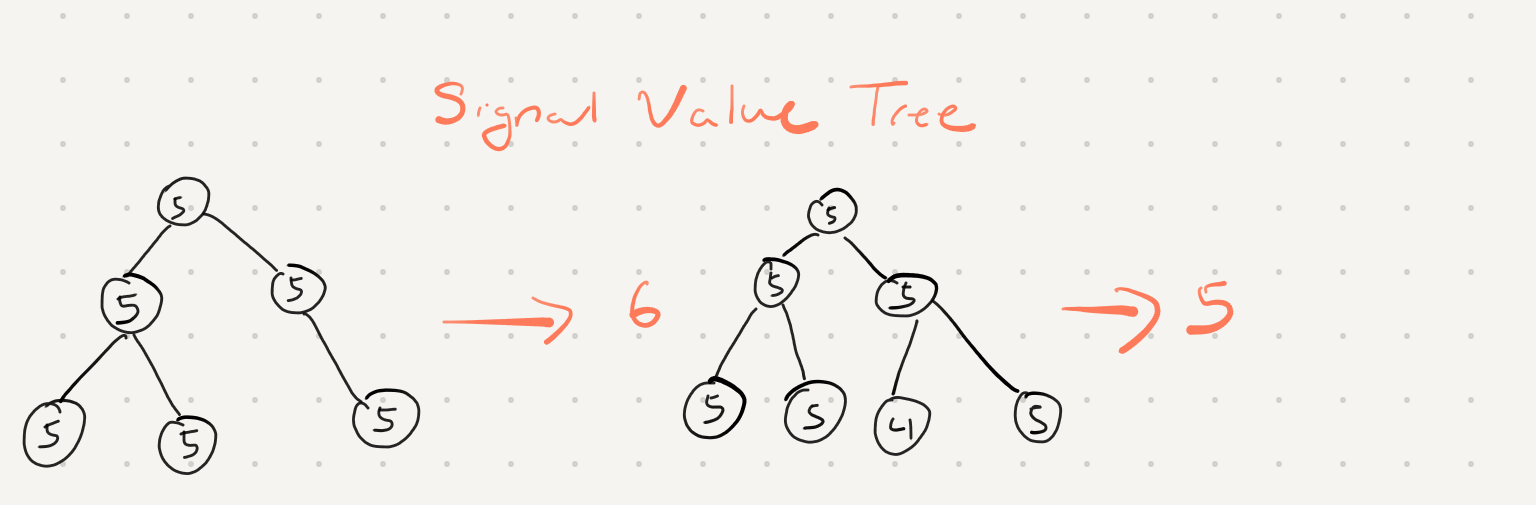 Signal Value Tree
5 5
5 5 → 6 5 5 → 5
5 5 5 5 5 4 5